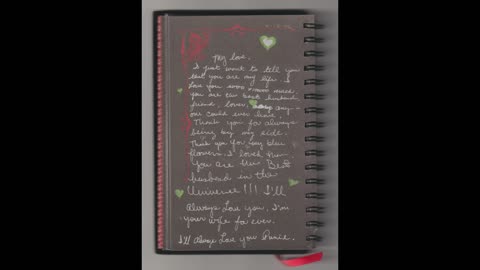 My love,
I just want to tell you
that you are my life. I
love you
you are the best husband,
friend, lover, any-
one could ever have.
Thank you for always
being by my side.
Thank you for my blue
flowers. I loved
You are the Best
husband in the
Universe!!! I'll
always Love you. I'm
your wife for ever.
I'll always Love you Prince.